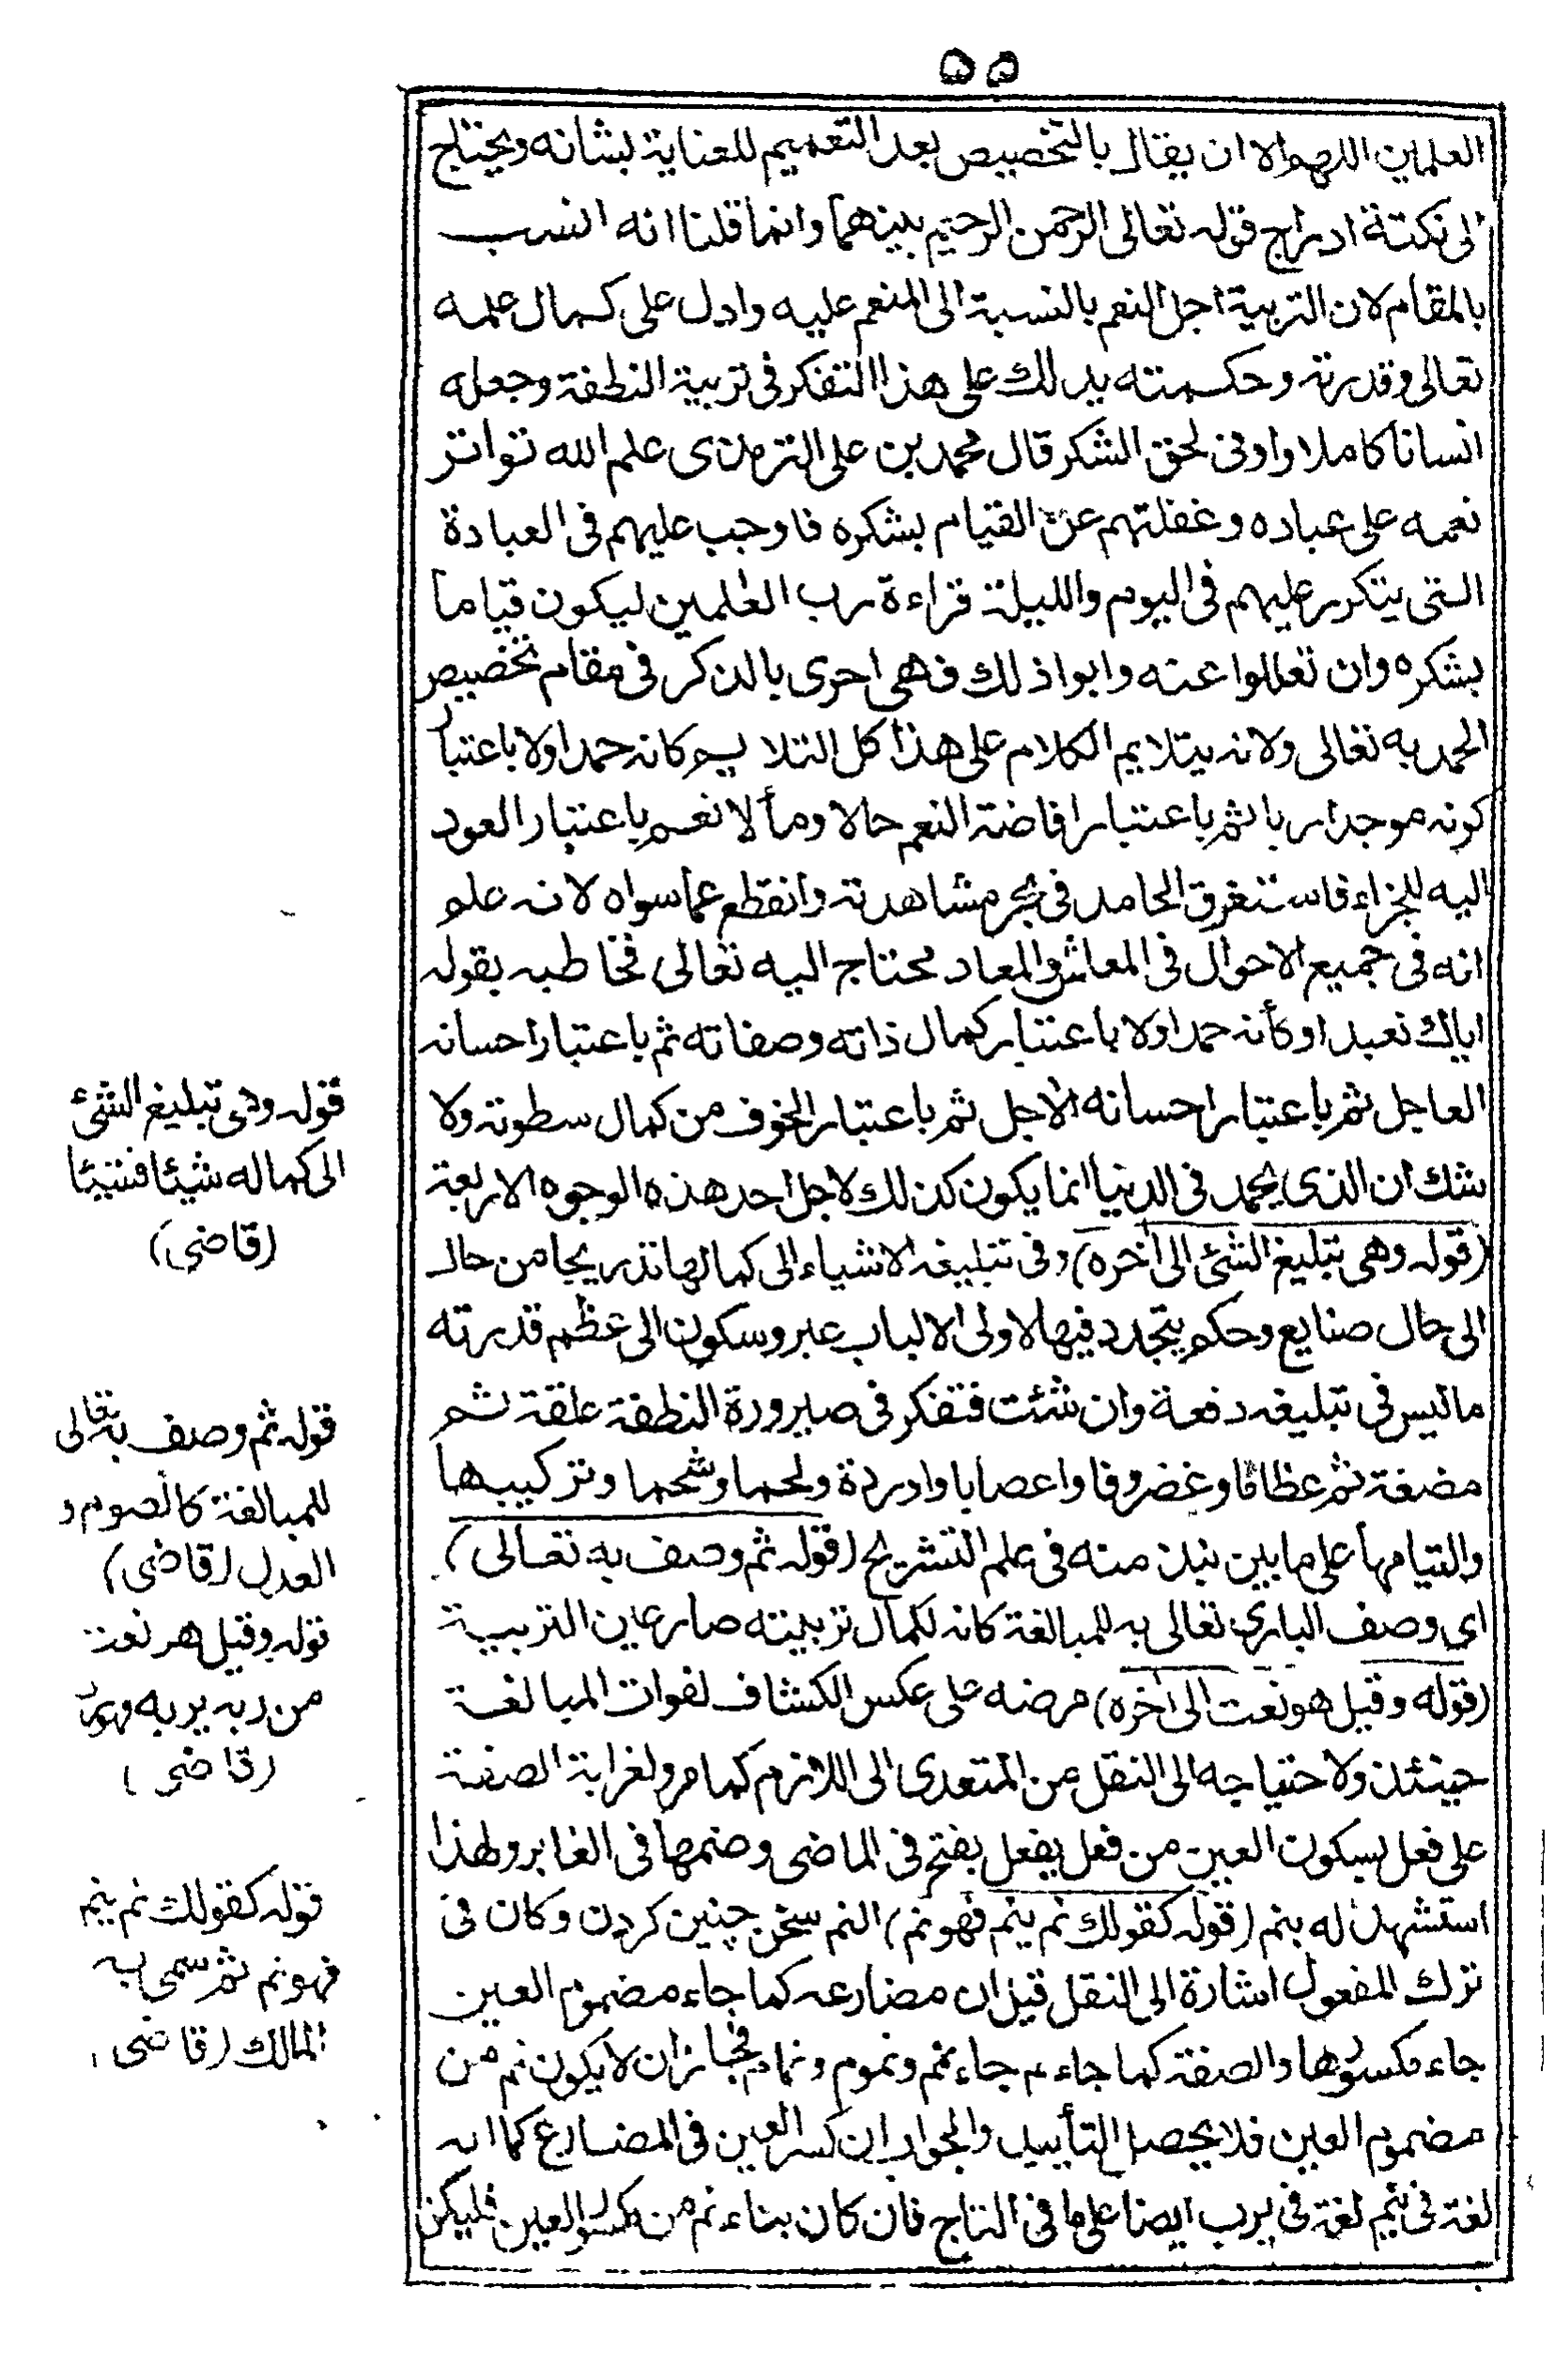 ٥٥
العلمين اللهم الا ان يقال بالتخصيص بعد التعميم للعناية بشانه ويحتاج
الى نكتة ادراج قوله تعالى الرحمن الرحيم بينهما وانما قلنا انه انسب
بالمقام لان التربية اجل النعم بالنسبة الى المنعم عليه وادل على كمال علمه
تعالى وقدرته وحكمته يدلك على هذا التفكر فى تربية النطفة وجعله
انسانا كاملا واوفى لحق الشكر قال محمد بن على الترمذى علم الله تواتر
نعمه على عباده وغفلتهم عن القيام بشكره فاوجب عليهم فى العبادة
التى يتكرر عليهم فى اليوم والليلة قراءة رب العلمين ليكون قياما
بشكره وان تعالوا عنه وابوا ذلك فهى احرى بالذكر فى مقام تخصيص
الحمد به تعالى ولانه يتلايم الكلام على هذا كل التلايم كانه حمد اولا باعتبار
كونه موجدا ربا ثم باعتبار افاضة النعم حالا ومآلا نعم باعتبار العود
اليه للجزاء فاستغرق الحامد فى بحر مشاهدته وانقطع عما سواه لانه علم
انه فى جميع الاحوال فى المعاش والمعاد محتاج اليه تعالى فخاطبه بقوله
اياك نعبد او كأنه حمد اولا باعتبار كمال ذاته وصفاته ثم باعتبار احسانه
العاجل ثم باعتبار احسانه الاجل ثم باعتبار الخوف من كمال سطوته ولا
شك ان الذى يحمد فى الدنيا انما يكون كذلك لاجل احد هذه الوجوه الاربعة
(قوله وهى تبليغ الشئ الى اخره) وفى تبليغه الاشياء الى كمالها تدريجا من حال
الى حال صنايع وحكم يتجدد فيها لاولى الالباب عبر وسكون الى عظم قدرته
ما ليس فى تبليغه دفعة وان شئت فتفكر فى صيرورة النطفة علقة ثم
مضغة ثم عظاما وغضروفا واعصابا واوردة ولحما وشحما وتركيبها
والتيامها على ما بين نبذ منه فى علم التشريح (قوله ثم وصف به تعالى)
اى وصف البارى تعالى به للمبالغة كانه لكمال تربيته صار عين التربية
(قوله وقيل هو نعت الى اخره) مرضه على عكس الكشاف لفوات المبالغة
حينئذ ولاحتياجه الى النقل من المتعدى الى اللازم كما مر ولغرابة الصفة
على فعل بسكون العين من فعل يفعل بفتح فى الماضى وضمها فى الغابر ولهذا
استشهد له بنم (قوله كقولك نم ينم فهو نم) النم سخن چنين كردن وكان فى
ترك المفعول اشارة الى النقل قيل ان مضارعه كما جاء مضموم العين
جاء مكسورها والصفة كما جاء نم جاء نمم ونموم ونمام فجاز ان لا يكون نم من
مضموم العين فلا يحصل التأييد والجواب ان كسر العين فى المضارع كما انه
لغة فى ينم لغة فى يرب ايضا على ما فى التاج فان كان بناء نم من مكسور العين فليكن
قوله وهى تبليغ الشئ
الى كماله شيئا فشيئا
(قاضى)
قوله ثم وصف به تعالى
للمبالغة كالصوم و
العدل (قاضى)
قوله وقيل هو نعت
من ربه يربه فهو رب
(قاضى)
قوله كقولك نم ينم
فهو نم ثم سمى به
المالك (قاضى)